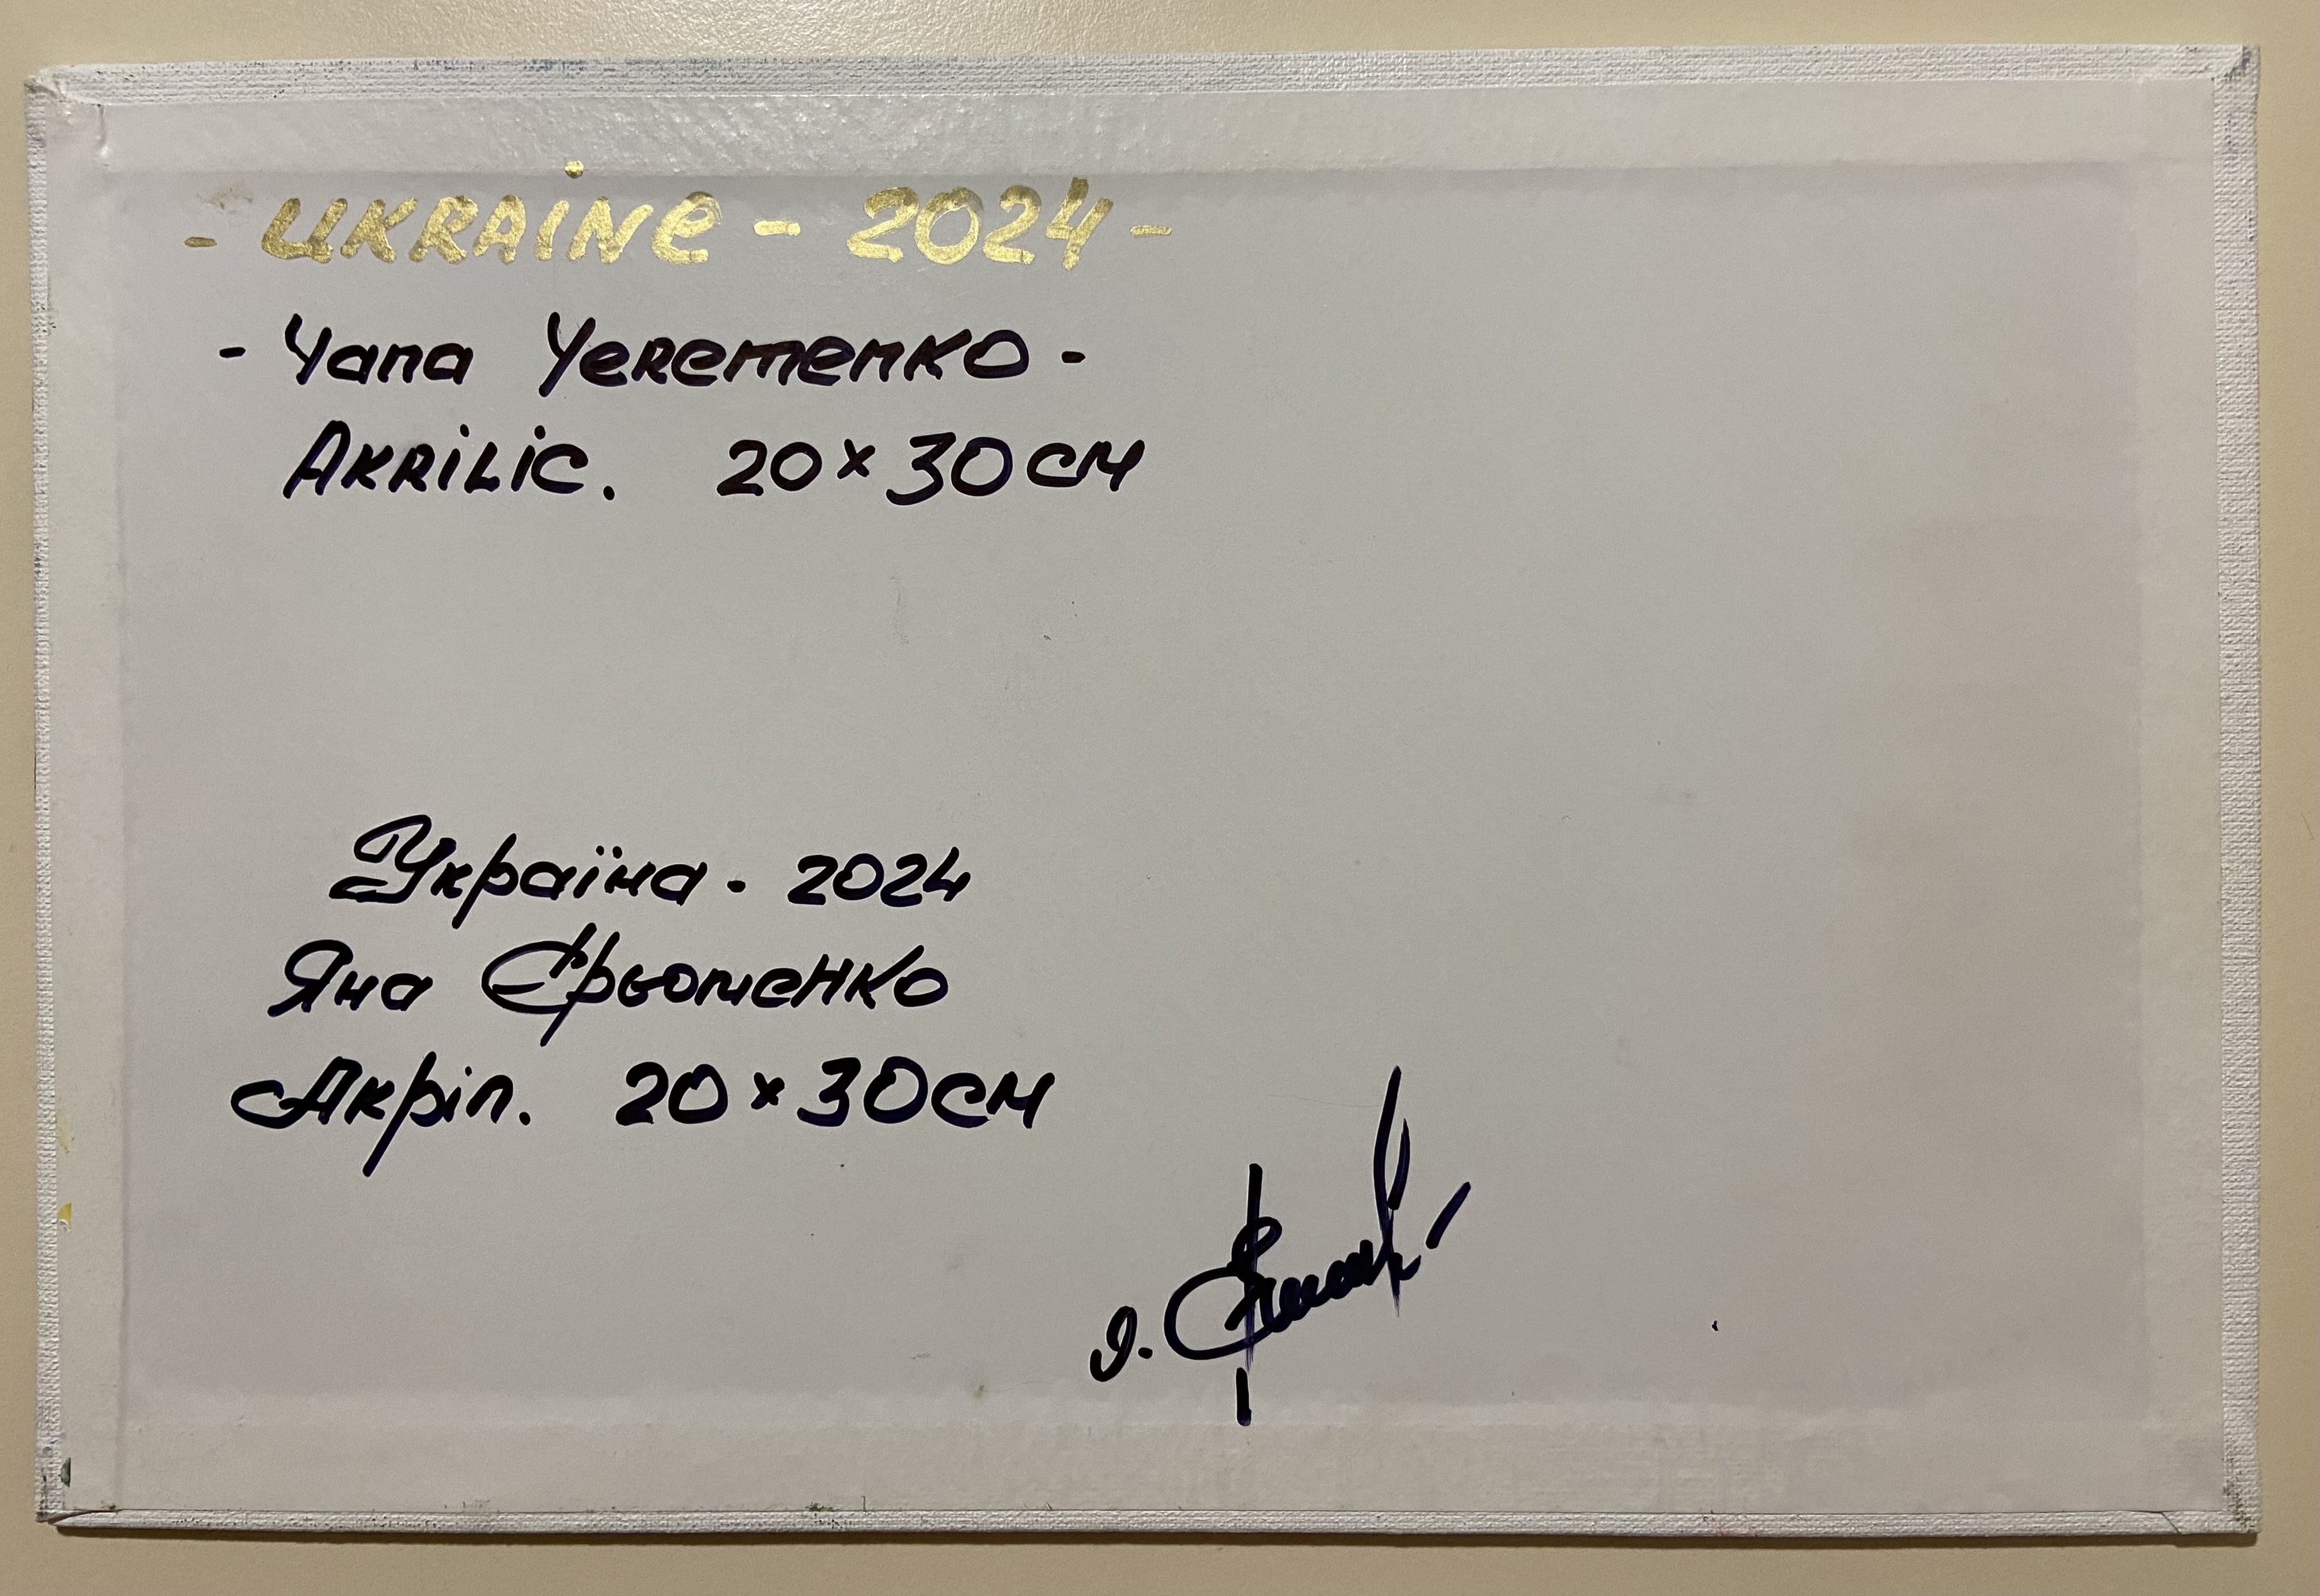 - UKRAiNe - 2024 -
- Yana Yeremenko -
AKRiLiC. 20×30 cm
Україна - 2024
Яна Єрьоменко
Акріл. 20×30 см